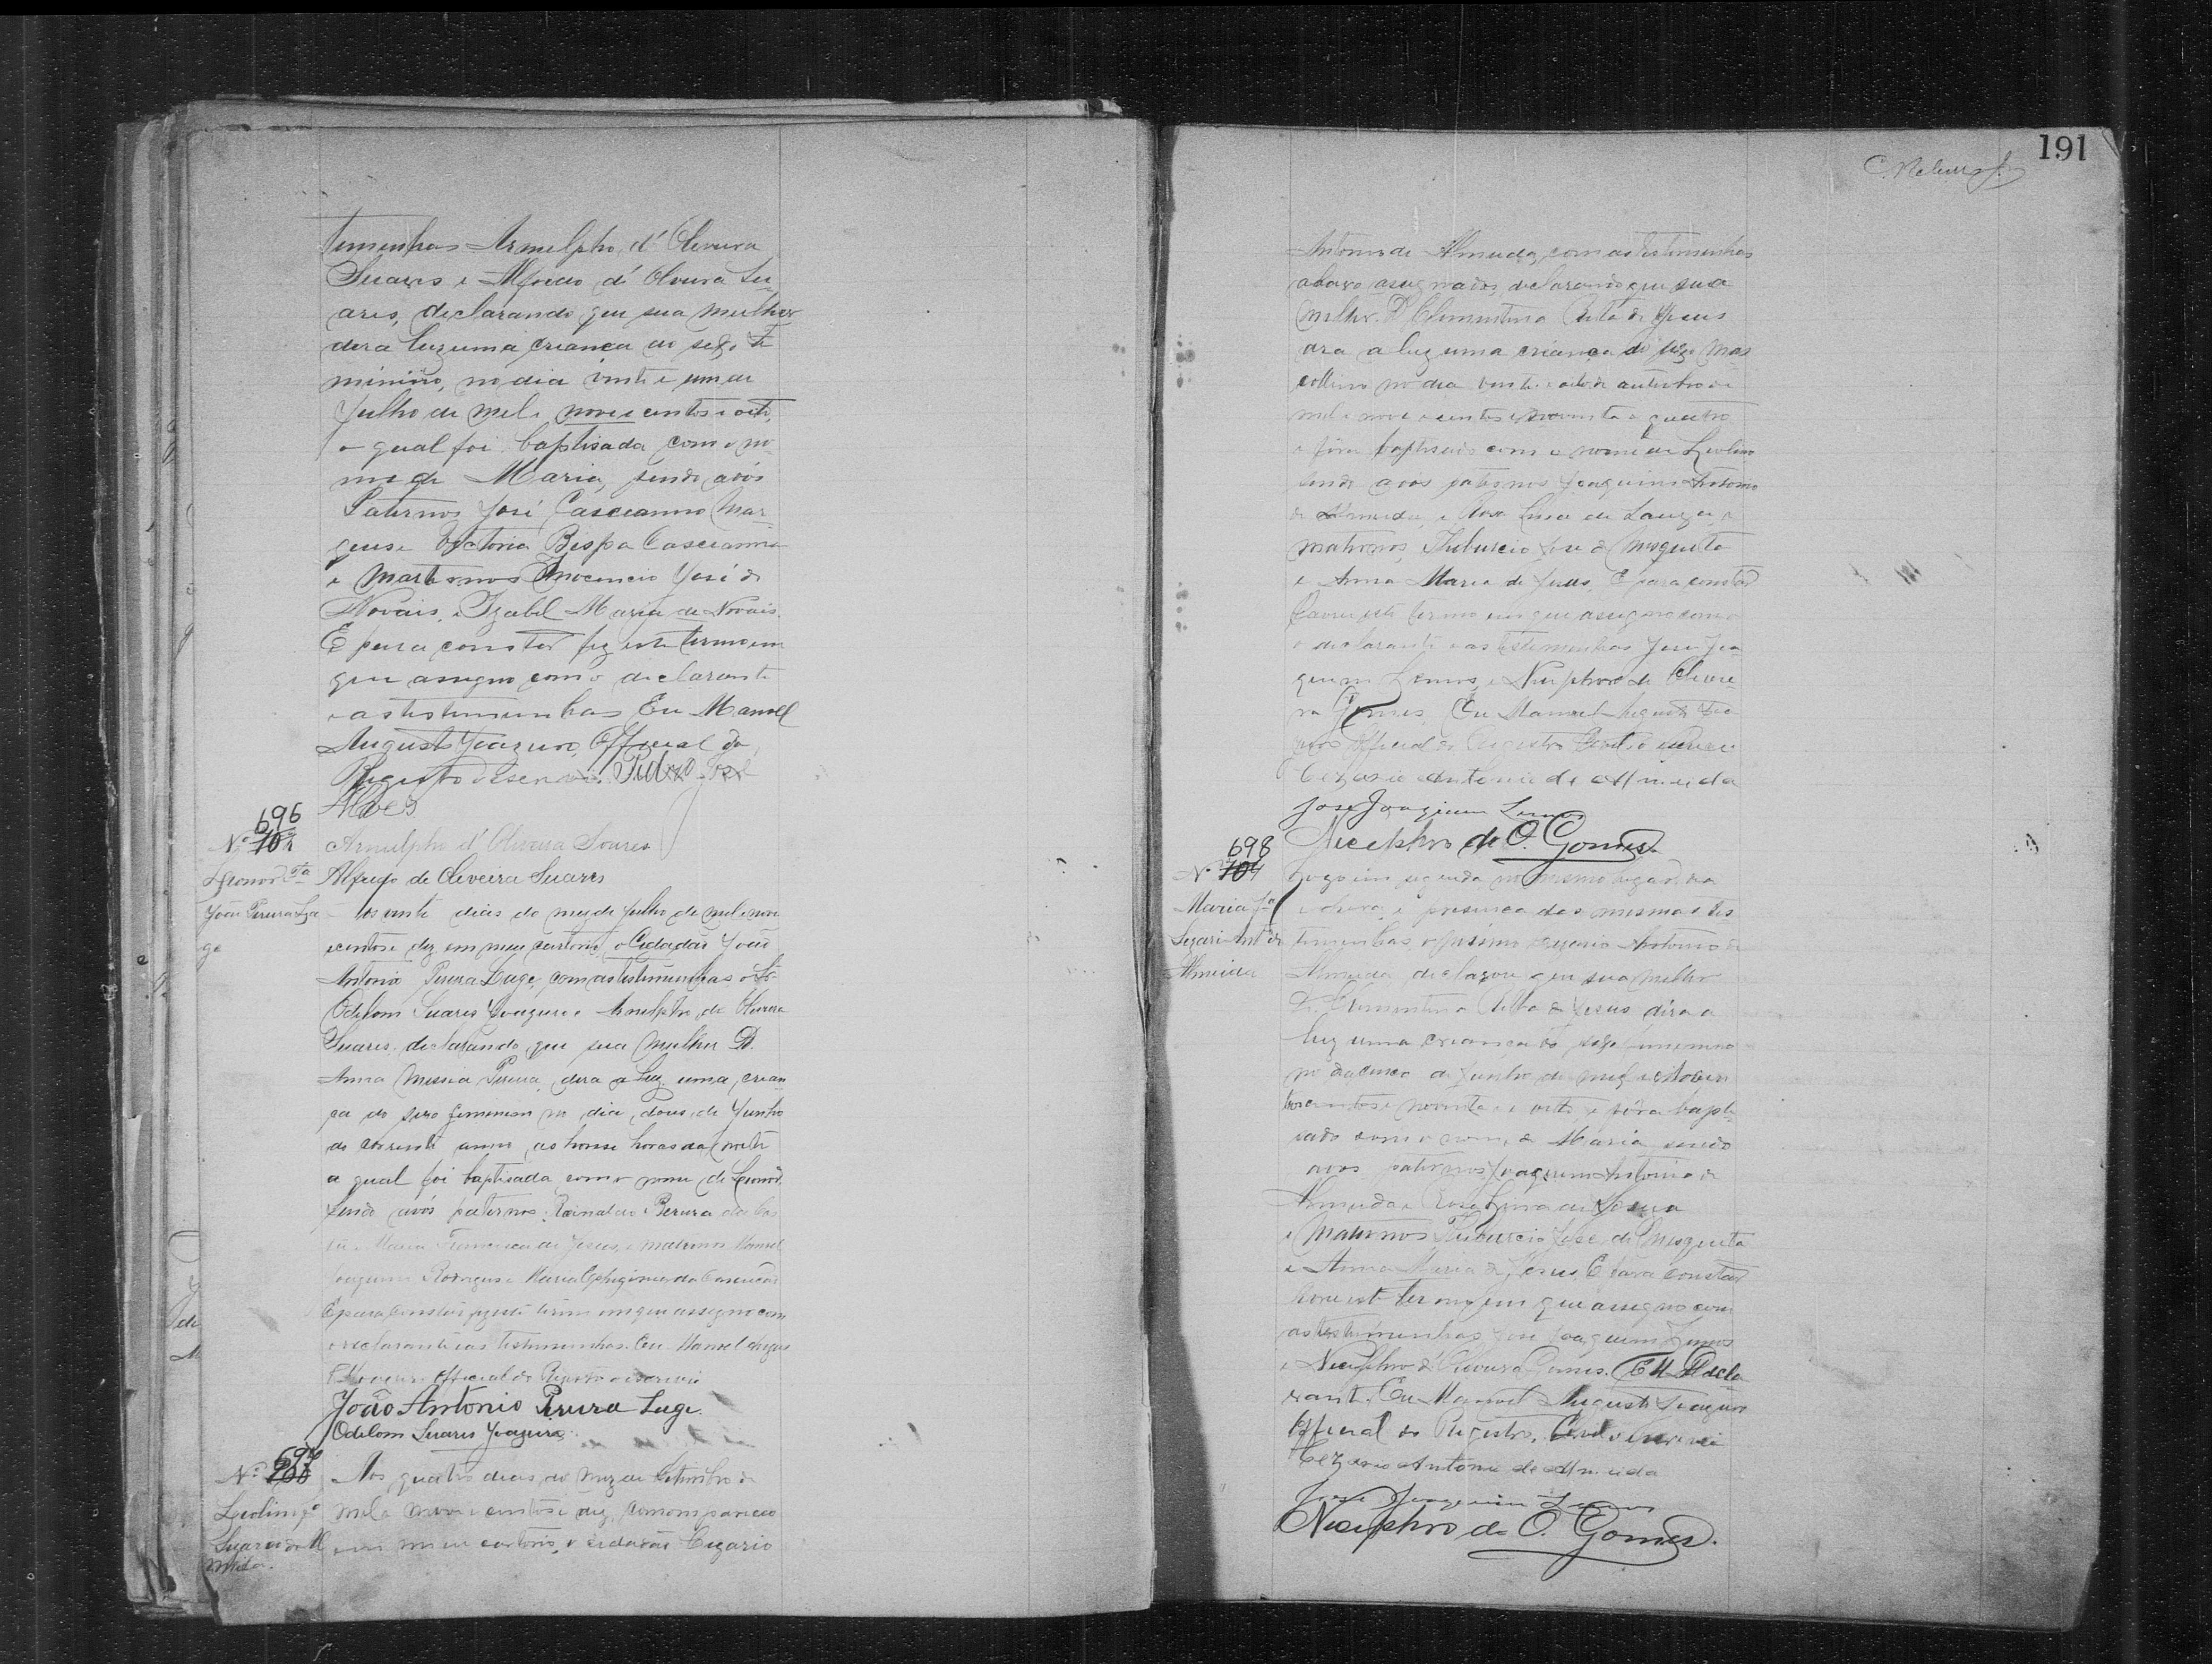 temenhas Arnulpho d' Oliveira
Suares e Alfredo d' Oliveira Su-
ares, declarando que sua mulher
dera luz uma criança do sexo fe
minino, no dia vinte e um de
Julho de mil e nove centos e oito,
o qual foi baptisada com o no
me de Maria, sendo avós
Paternos José Casceanno Mar-
ques e Victoria Bispa Casceanna
e Marternos Inocencio José de
Novais, e Izabel Maria de Novais.
E para constar fiz este termo em
que assigno com o declarante
e as testemunhas Eu Manoel
Augusto Joazeiro, Official do
Registro o escrevi. Pedro José
Alves
696
Nº 702
Arnulpho d' Oliveira Soares
Leonor fª
João Pereira La
ge
Alfredo de Oliveira Suares
Aos vinte dias do mez de Julho de mil e nove
centos e dez em meu cartorio o Cidadão João
Antonio Pereira Lage, com as testemunhas
Odilom Suares Joazeiro e Arnulpho de Oliveira
Suares, declarando que sua mulher D.
Anna Messia Pereira, dera a luz uma crean
ça do sexo feminino no dia dous de Junho
do corrente anno, as honse horas da noite
a qual foi baptisada com o nome de Leonor,
sendo avós paternos Reinaldo Pereira da
e Maria Francisca de Jesus, e maternos Manoel
Joaquim Rodrigues e Maria Ephigenia da Conceição
E para constar fiz este termo em que assigno com
o declarante e as testemunhas. Eu Manoel Augus
to Joazeiro Official do Registro o escrevi
João Antonio Pereira Lage.
Odilom Suares Joazeiro
697
Nº 703
Leolino fº
Sezario de Al
meida.
Aos quatro dias do mez de Setembro de
mil e nove centos e dez, comompareceo
em meu cartorio, o cidadão Cezario
191
Antonio de Almeida, com as testemunhas
abaxo assignados, declarando que sua
mulher D. Clementina Rita de Jesus
ara a luz uma criança do sexo mas
collino no dia vinte e oito de outubro de
mil e nove centos e noventa e quatro
e fôra baptisado com o nome de Leolino
sendo avós paternos Joaquim Antonio
de Almeida, e Rosa Lina de Souza, e
maternos, Thiburcio José de Mesquita
e Anna Maria de Jesus, E para constar
lavrei este termo em que assigno com o
o declarante e as testemunhas José Joa
quim Lemos, e Nicephro de Olivei-
ra Gomes. Eu Manoel Augusto Joa
zeiro Official do Registro Civil o escrevi
Cezario Antonio de Almeida
José Joaquim Lemos
Nicephro de O. Gomes.
698
Nº 704
Maria fª
Sezario Antº de
Almeida
Logo em seguida, no mesmo lugar, dia
e hora, e presença das mesmas tes
temunhas, o mesmo Cezario Antonio de
Almeida declarou que sua mulher
D. Clementina Rita de Jesus dera a
luz uma criança do sexo
no dia cinco de Junho de mil e oitocen
tos e noventa e oito e fôra bapti
sado com o nome de Maria sendo
avos paternos Joaquim Antonio de
Almeida e Rosa Lina de Souza
e maternos Thiburcio José de Mesquita
e Anna Maria de Jesus, E para constar
lavrei este termo em que assigno com
as testemunhas José Joaquim Lemos
e Nicephro d' Oliveira Gomes. E o decla
rante. Eu Manoel Augusto Joazeiro
Official do Registro Civil o escrevi
Cezario Antonio de Almeida
José Joaquim Lemos
Nicephro de O. Gomes.